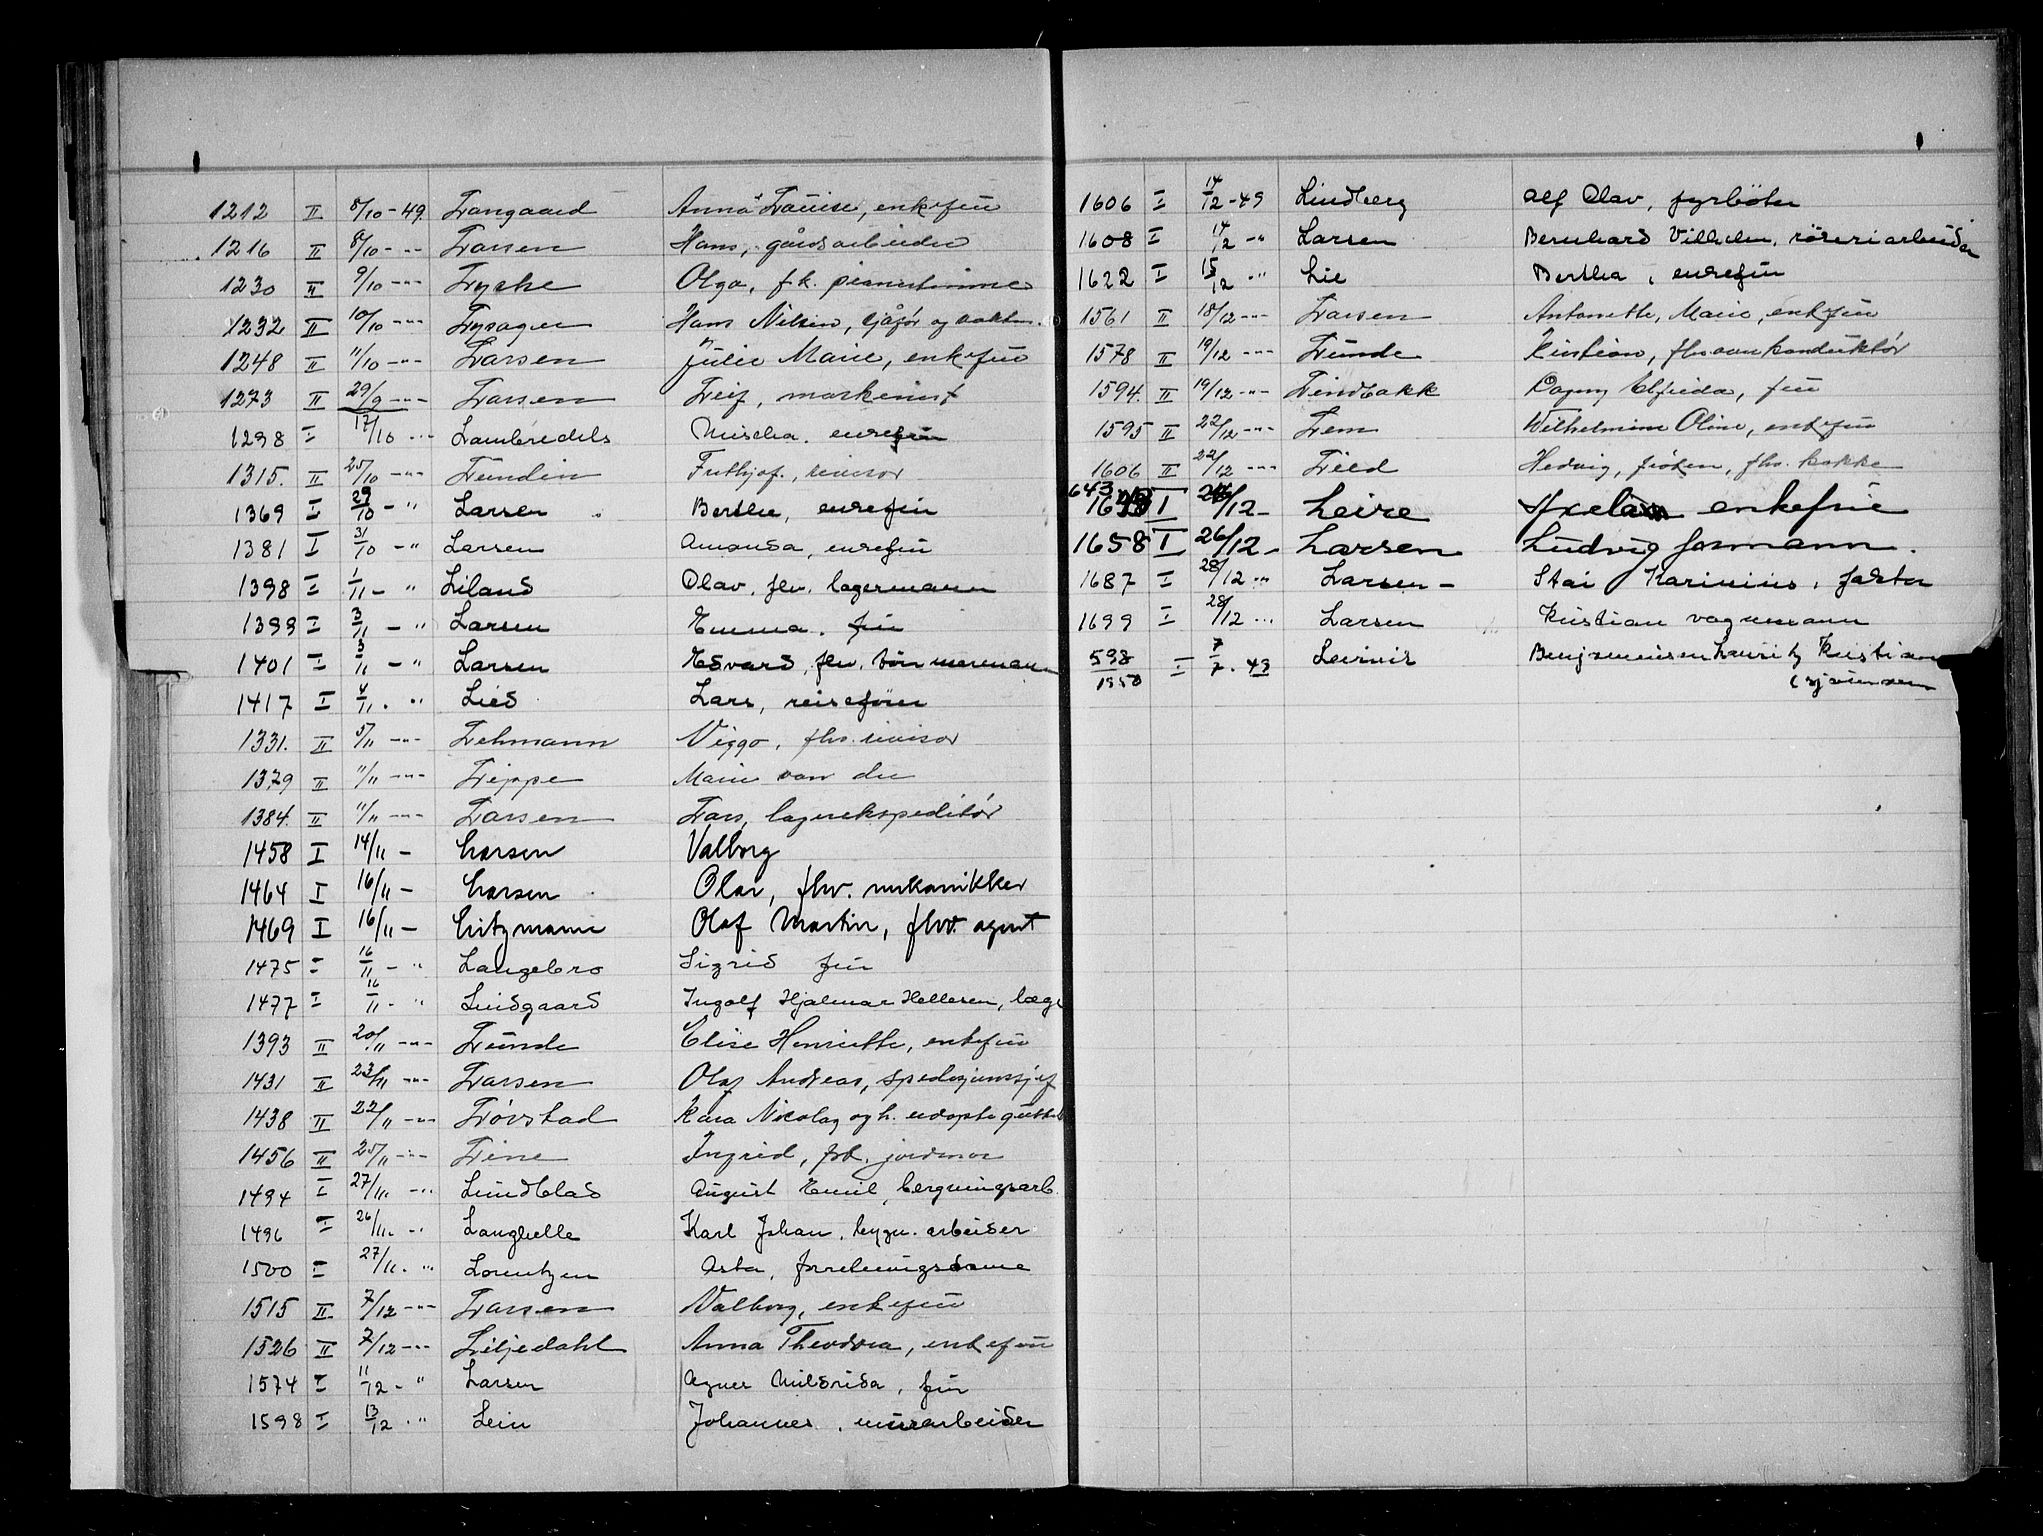 1212 II 8/10-49 Langaard Anna Louise, enkefru
1216 II 8/10 -"- Larsen Hans, gårdsarbeider
1230 II 9/10 -"- Lycke Olga, f.k. pianistinne
1232 II 10/10 -"- Lysager Hans Nilsen, sjåfør og
1248 II 11/10 -"- Larsen Julie Marie, enkefru
1273 II 29/9 -"- Larsen Leif, maskinist
1298 I 17/10 -"- enkefru
1315. II 25/10 -"- Lundin Frithjof, revisor
1369 I 29/10 - " Larsen Berthe, enkefru
1381 I 31/10 - " Larsen Amanda, enkefru
1398 I 1/11 - " Liland Olav, flv. lagermann
1399 I 3/11 - " Larsen Emma, fru
1401 I 3/11 - " Larsen Edvard, flv.
1417 I 4/11 . " Lied Lars,
1331. II 5/11 -"- Lehmann Viggo, fhv. revisor
1379 II 11/11 -"- Leppe Marie van der
1384. II 11/11 -"- Larsen Lars, lagerekspeditør
1458 I 14/11 - Larsen Valborg
1464 I 16/11 - Larsen Olav, fhv. mekanikker
1469 I 16/11 - Litzmann Olaf Martin, fhv. agent
1475 I 16/11 - " Langebro Sigrid fru
1477 I 16/11 - " Lindgaard Ingolf Hjalmar Hellesen, læge
1393 II 20/11 -"- Lunde Elise Henriette, enkefru
1431 II 23/11 -"- Larsen Olaf Andreas, spedisjonssjef
1438 II 22/11 -"- Løvstad Kara Nicolay og h.
1456 II 25/11 -"- Line Ingrid, fsk. jordmor
1494 I 27/11 -" Lundblad August Emil, bergningsarb.
1496 I 26/11. -" Langhelle Karl Johan, bygn. arbeider
1500 I 27/11. " Lorentzen Asta, forretningsdame
1515 II 7/12 -"- Larsen Valborg, enkefru
1526 II 7/12 -"- Liljedahl Anna Theodora, enkefru
1574 I 11/12 - " Larsen Agnes Mildrida, fru
1598 I 13/12 . " Lein Johannes, murarbeider
1606 I 14/12-49 Lindberg Alf Olav, fyrbøter
1608 I 14/12 " Larsen Bernhard Vilhelm, røkeriarbeider
1622 I 15/12 " Lie Bertha, enkefru
1561 II 18/12 -"- Larsen Antonette, Marie, enkefru
1578 II 19/12 -"- Lunde Kristian, fhv. konduktør
1594. II 19/12 -"- Lindbakk Dagny Elfrida, fru
1595 II 22/12 -"- Lem Wilhelmine Oline, enkefru
1606 II 22/12 -"- Lied Hedvig, frøken, fhv. kokke
643 I 24/12 - Leire enkefrue
1658 I 26/12 - Larsen Ludvig formann.
1687 I 28/12 " Larsen - Karinius, faktor
1699 I 28/12 " Larsen Kristian vognmann
598/1950 I 7/7. 49 Benjaminsen Lauritz Kristian